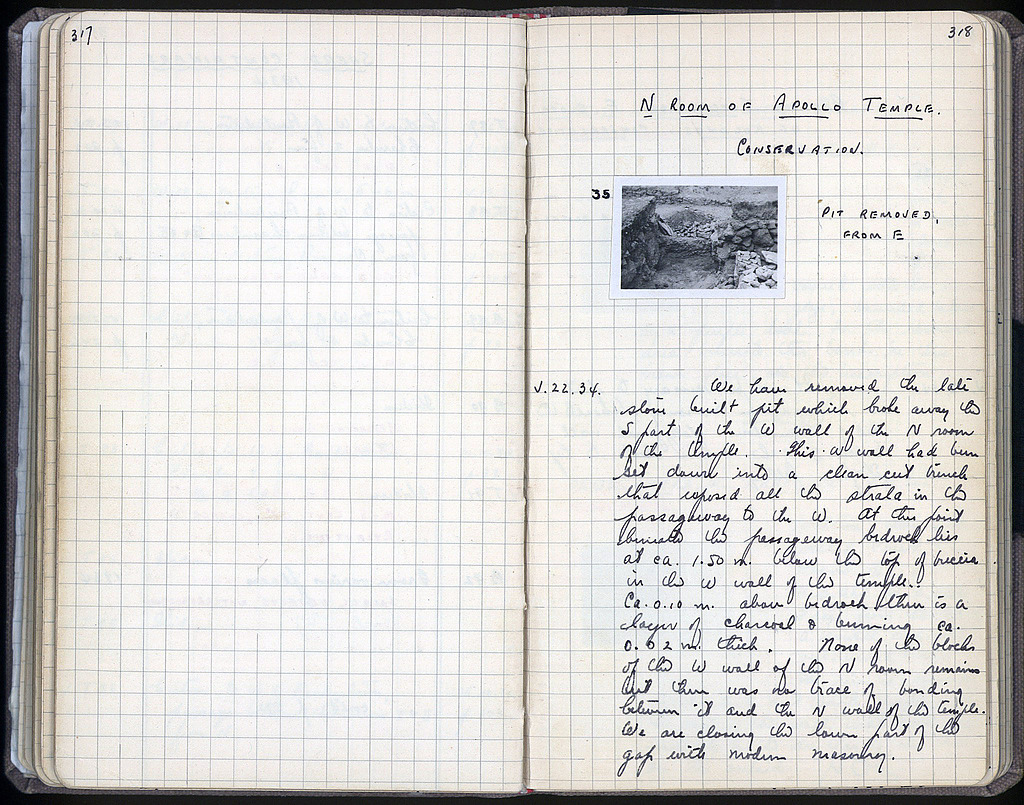 317
318
N ROOM OF APOLLO TEMPLE.
CONSERVATION.
35
PIT REMOVED,
FROM E
V.22.34. We have removed the late
stone built pit which broke away the
S part of the W wall of the N room
of the temple. This W wall had been
set down into a clean cut trench
that exposed all the strata in the
passageway to the W. At this point
beneath the passageway bedrock lies
at ca. 1.50 m. below the top of breccia
in the W wall of the temple.
Ca. 0.10 m. above bedrock there is a
layer of charcoal & burning ca.
0.02 m. thick. None of the blocks
of the W wall of the N room remains
but there was no trace of bonding
between it and the N wall of the temple.
We are closing the lower part of the
gap with modern masonry.